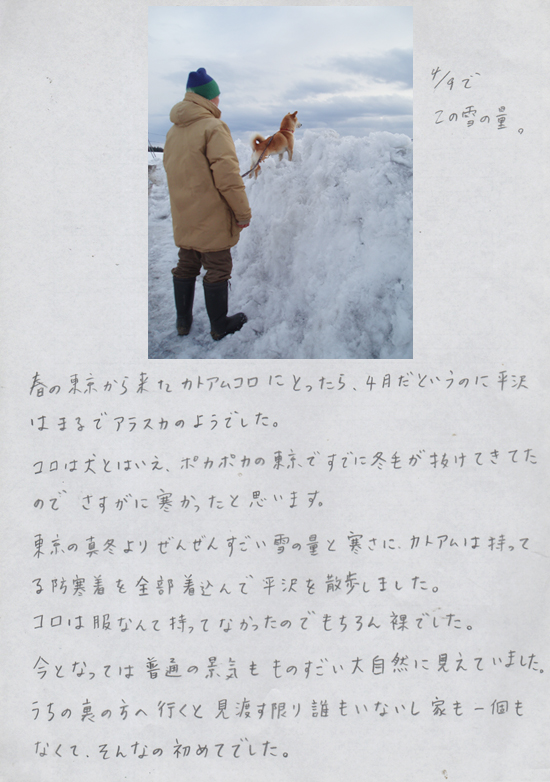 4/9で
この雪の量。
春の東京から来たカトアムコロにとったら、4月だというのに平沢
はまるでアラスカのようでした。
コロは犬とはいえ、ポカポカの東京ですでに冬毛が抜けてきてた
のでさすがに寒かったと思います。
東京の真冬よりぜんぜんすごい雪の量と寒さに、カトアムは持って
る防寒着を全部着込んで平沢を散歩しました。
コロは服なんて持ってなかったのでもちろん裸でした。
今となっては普通の景気もものすごい大自然に見えていました。
うちの裏の方へ行くと見渡す限り誰もいないし家も一個も
なくて、そんなの初めてでした。